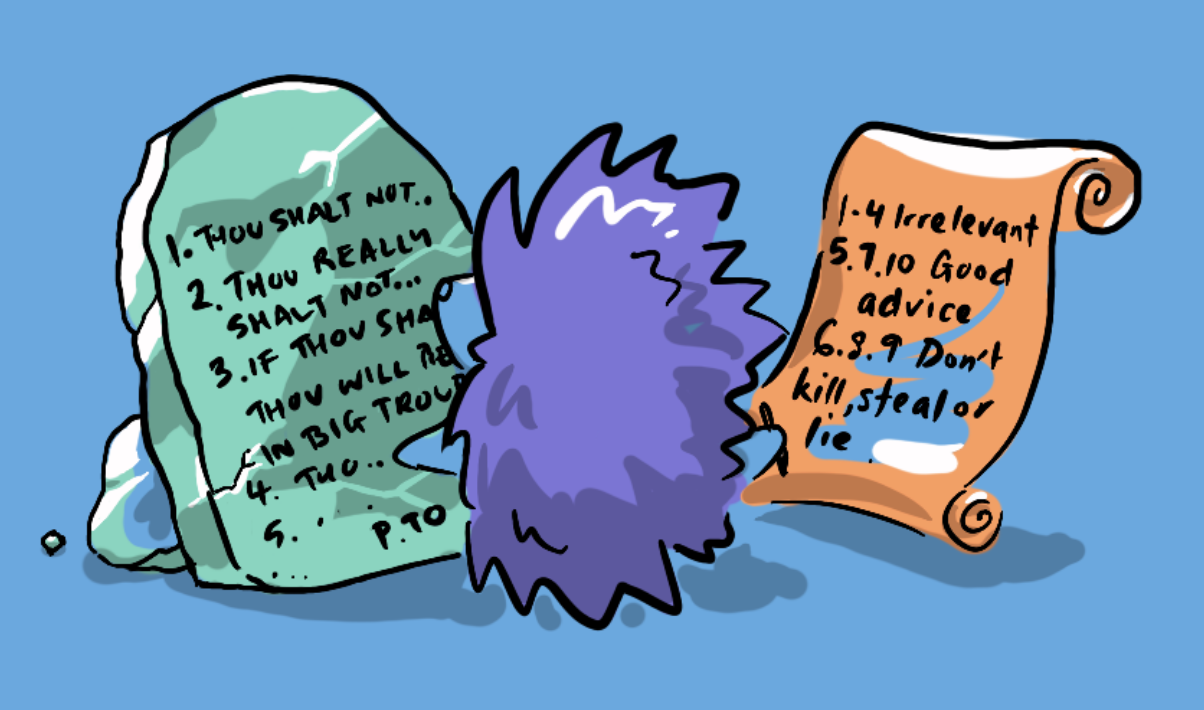 1. THOU SHALT NOT..
2. THOU REALLY
SHALT NOT...
3. IF THOU SHA
THOU WILL BE
IN BIG TROU
4. THO..
5. . . .
P.TO
1-4 Irrelevant
5.7.10 Good
advice
6.8.9 Don't
kill, steal or
lie.